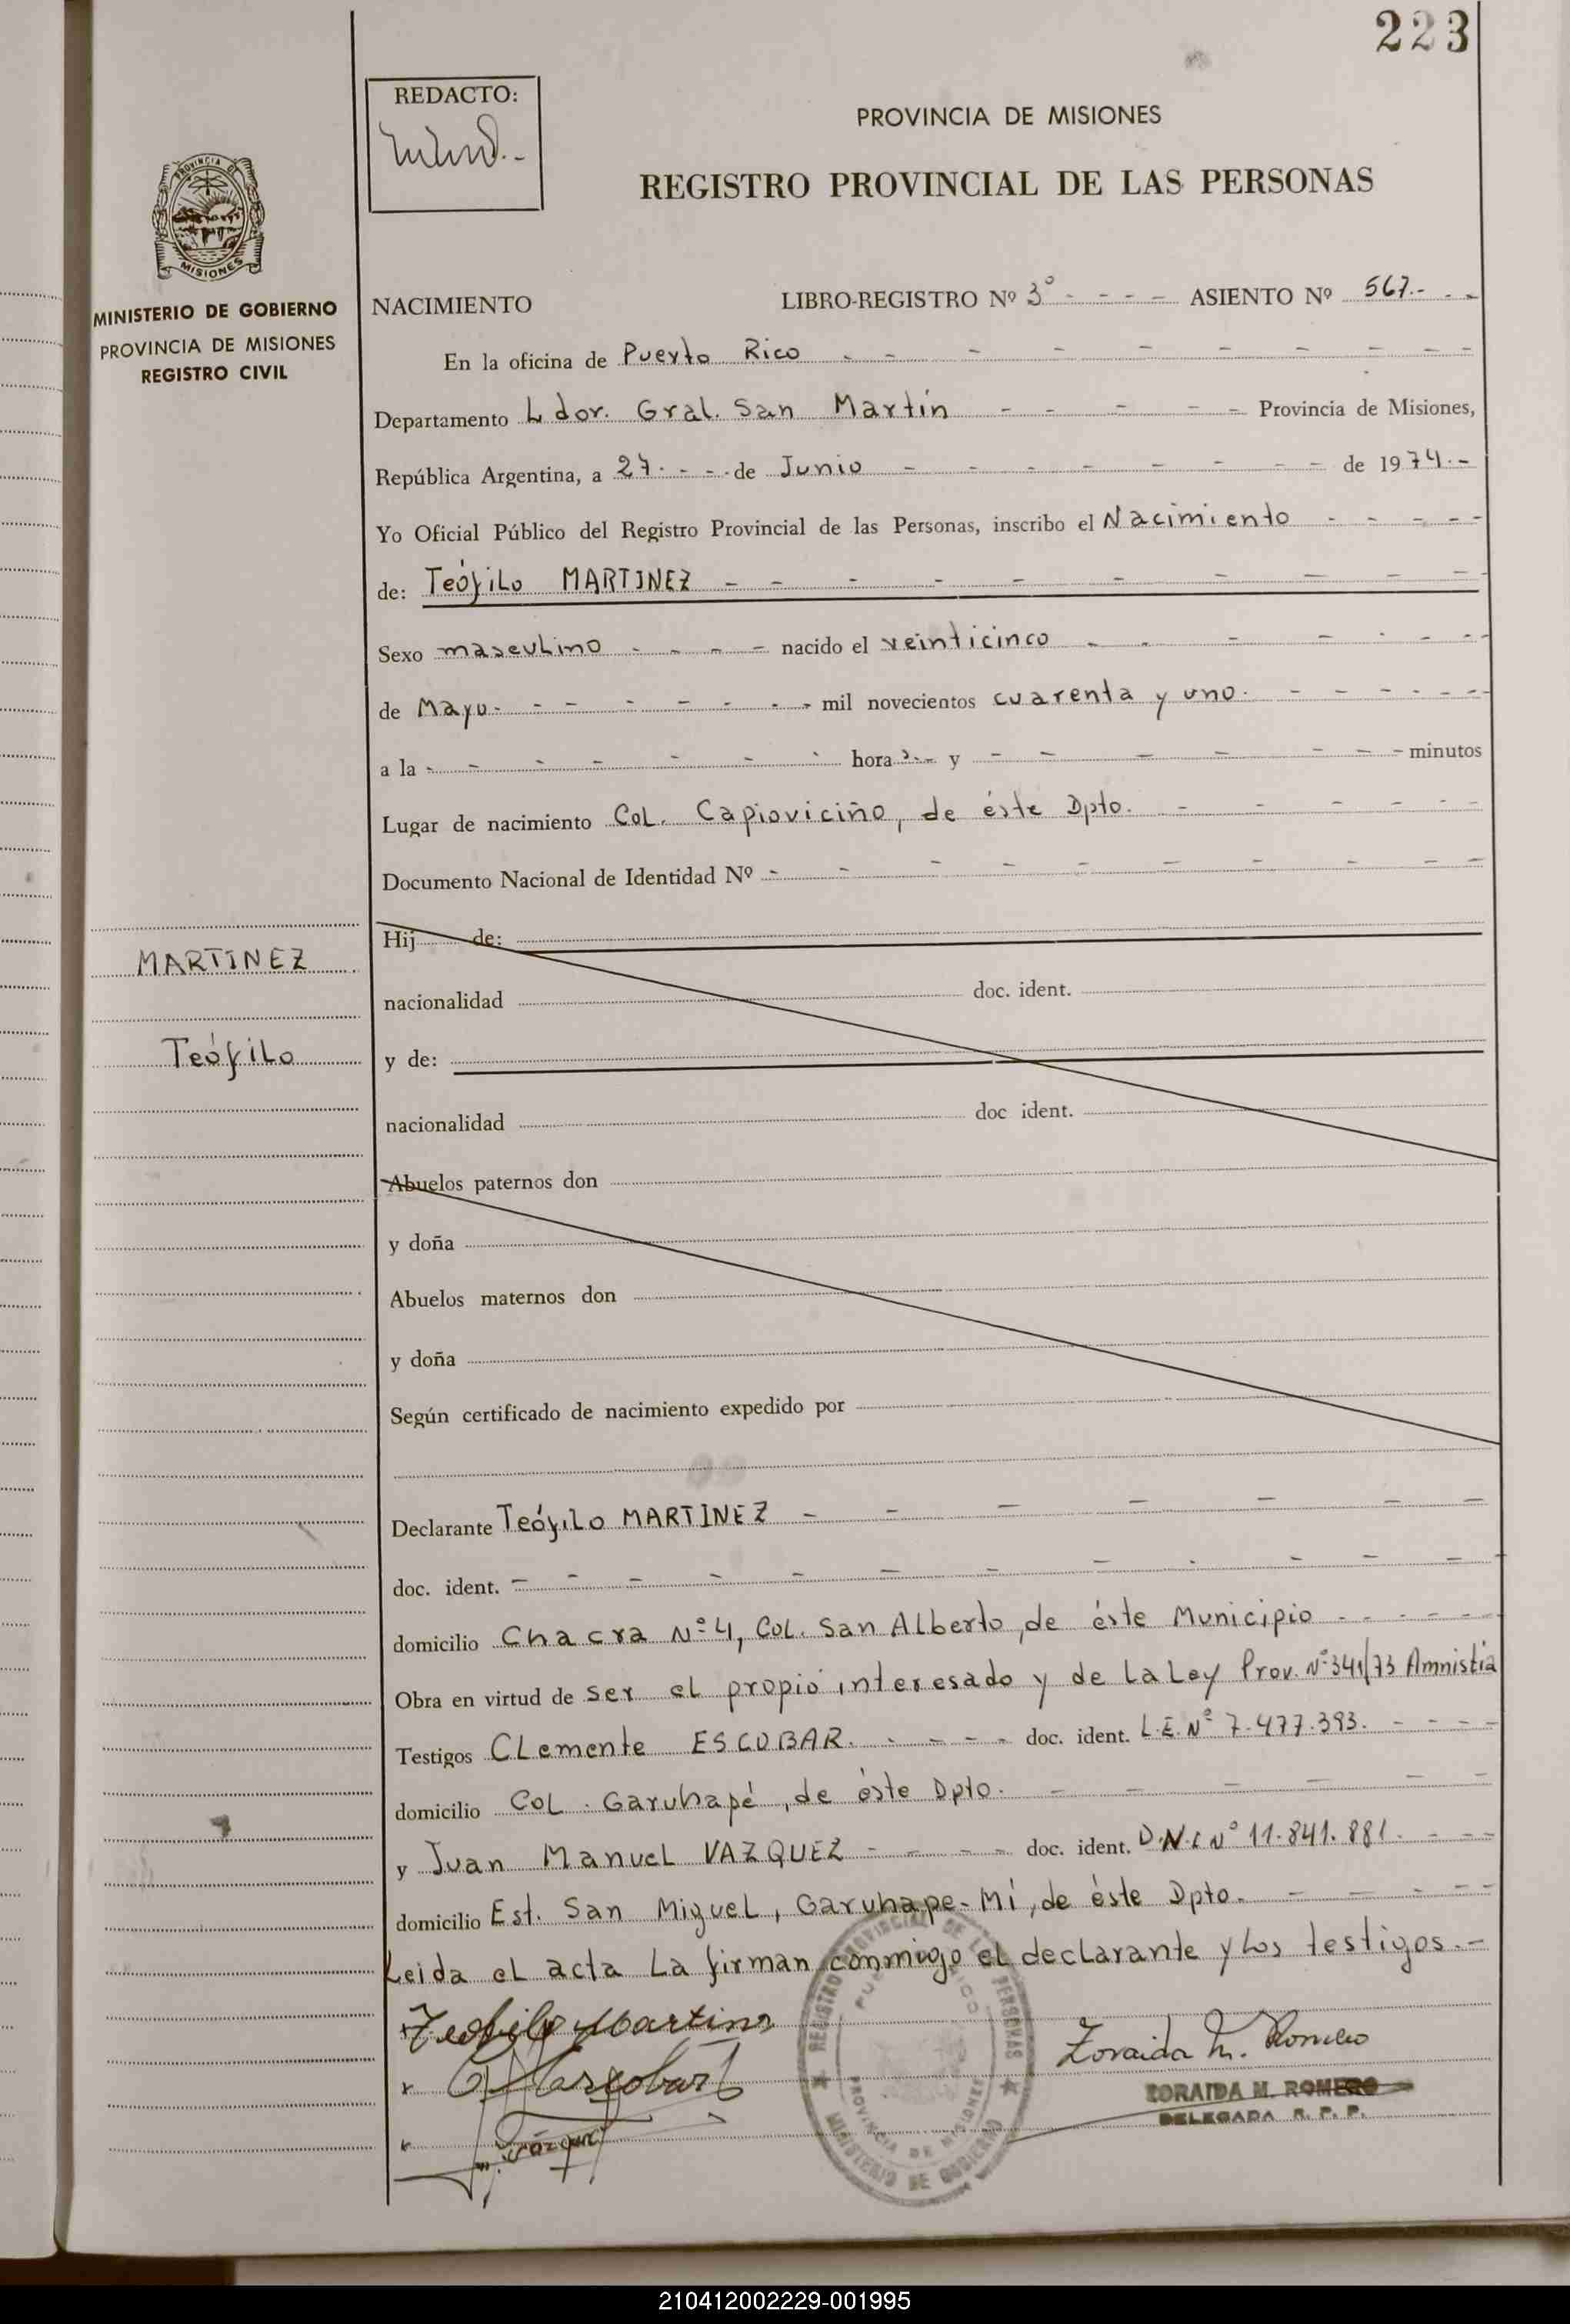 223
REDACTO:
PROVINCIA DE MISIONES
REGISTRO PROVINCIAL DE LAS PERSONAS
PROVINCIA
MISIONES
MINISTERIO DE GOBIERNO
PROVINCIA DE MISIONES
REGISTRO CIVIL
NACIMIENTO LIBRO-REGISTRO Nº 3º - - - - ASIENTO Nº 567.- - -
En la oficina de Puerto Rico - - - - - - - - -
Departamento Ldor. Gral. San Martín - - - - - Provincia de Misiones,
República Argentina, a 27. - - - de Junio - - - - - - - de 1974.-
Yo Oficial Público del Registro Provincial de las Personas, inscribo el Nacimiento - - - - -
de: Teófilo MARTINEZ - - - - - - - - - -
Sexo masculino - - - - nacido el veinticinco - - - - - - -
de Mayo- - - - - - - - mil novecientos cuarenta y uno. - - - - - -
a la - - - - - - - hora s.- y - - - - - - - minutos
Lugar de nacimiento Col. Capioviciño, de éste Dpto. - - - - -
Documento Nacional de Identidad Nº - - - - - - - - - -
MARTINEZ
Teófilo
Hij de:
nacionalidad doc. ident.
y de:
nacionalidad doc ident.
Abuelos paternos don
y doña
Abuelos maternos don
y doña
Según certificado de nacimiento expedido por
Declarante Teófilo MARTINEZ - - - - - - -
doc. ident. - - - - - - - - - - - -
domicilio Chacra Nº 4, Col. San Alberto, de éste Municipio - - - - -
Obra en virtud de ser el propio interesado y de la Ley Prov. Nº 341/73 Amnistía
Testigos Clemente ESCOBAR. - - - - doc. ident. L.E. Nº 7.477.393. - - - -
domicilio Col. Garuhapé, de éste Dpto. - - - - - -
y Juan Manuel VAZQUEZ - - - - doc. ident. D.N.I Nº 11.841.881. - - -
domicilio Est. San Miguel, Garuhape-Mí, de éste Dpto. - - - - -
Leida el acta la firman conmigo el declarante y los testigos.-
Teofilo Martinez
Escobar
Vázquez
Zoraida M. Romero
ZORAIDA M. ROMERO
DELEGADA R. P. P.
REGISTRO PROVINCIAL DE LAS PERSONAS
PUERTO RICO
PROVINCIA DE MISIONES
MINISTERIO DE GOBIERNO
210412002229-001995